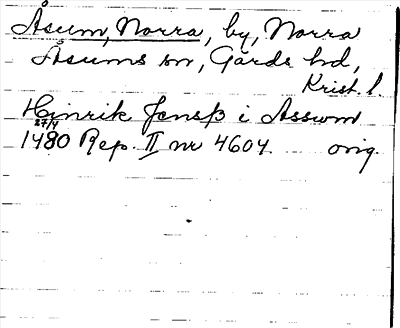 Åsum, Norra, by, Norra
Åsums sn, Gärds hd,
Krist. l.
Hinrik Jensß i Asswm
27/4
1480 Rep. II nr 4604. orig.